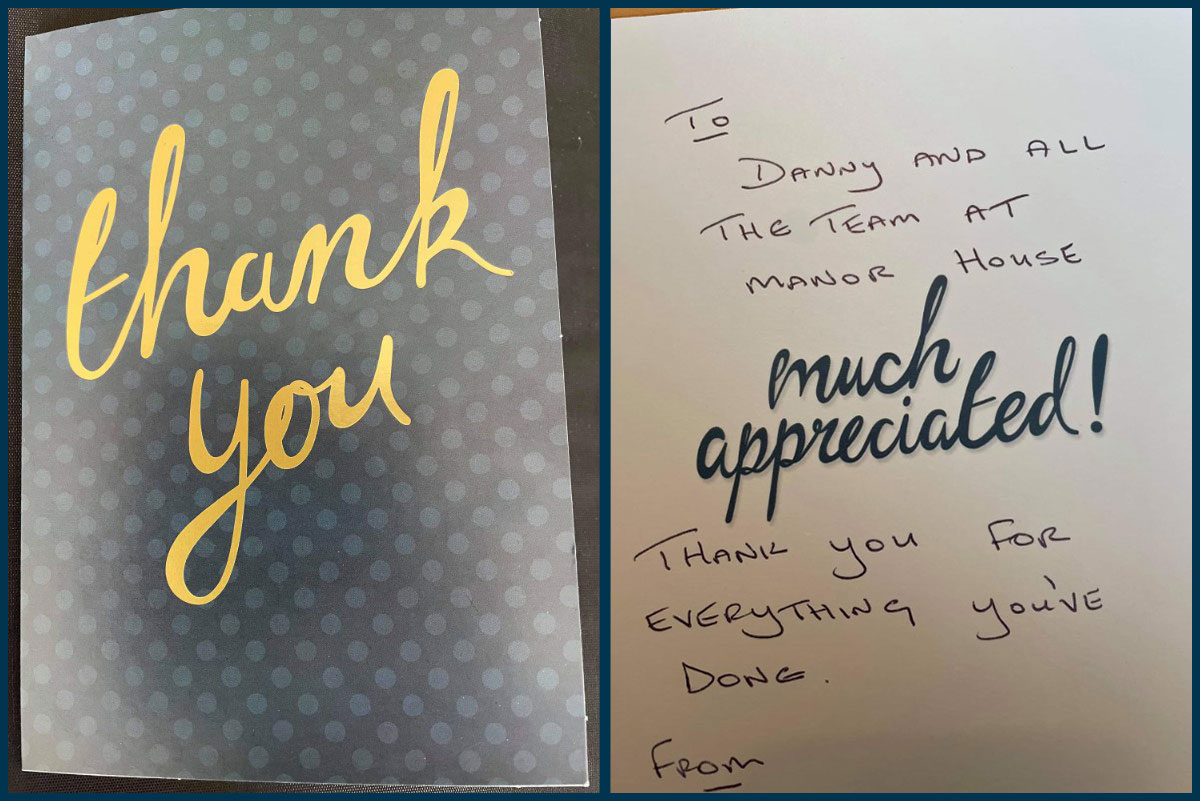 thank
you
To
DANNY AND ALL
THE TEAM AT
MANOR HOUSE
much
appreciated!
THANK YOU FOR
EVERYTHING YOU'VE
DONE.
FROM